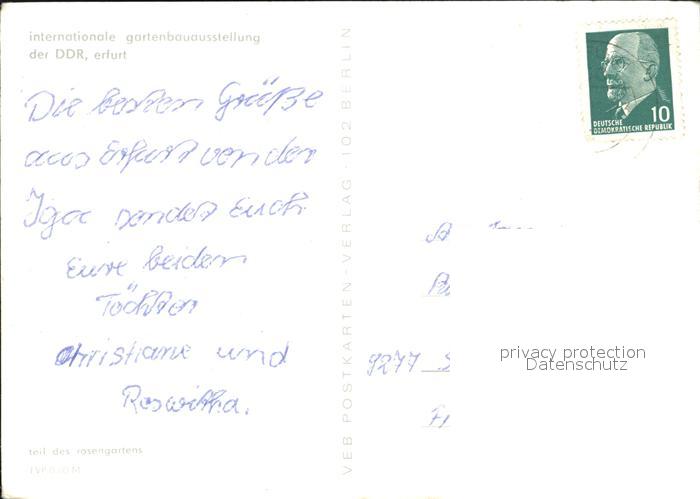 internationale gartenbauausstellung
der DDR, erfurt
Die besten Grüße
aus Erfurt von der
Iga sendet Euch
Eure beiden
Töchter
Christiane und
Roswitha.
teil des rosengartens
VEB POSTKARTEN-VERLAG - 102 BERLIN
10
DEUTSCHE
DEMOKRATISCHE REPUBLIK
9277
privacy protection
Datenschutz